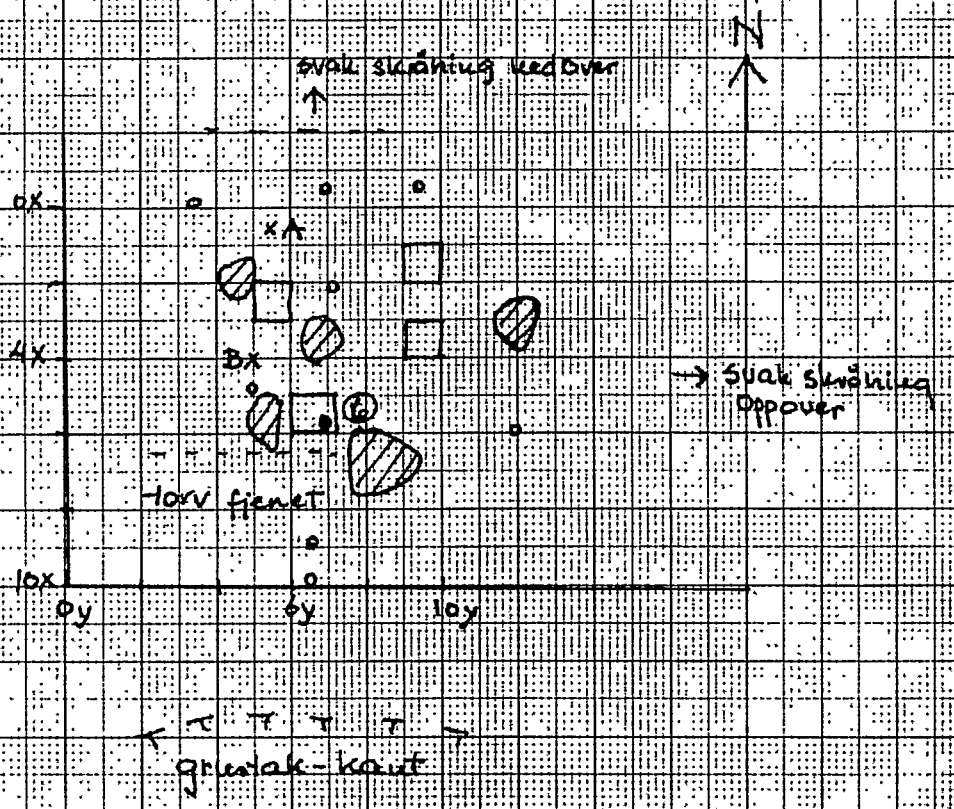 N
svak skråning nedover
0X
x A
4X
BX
→ svak skråning
oppover
t
torv fjenet
10X
0y
6y
10y
grustak-kant